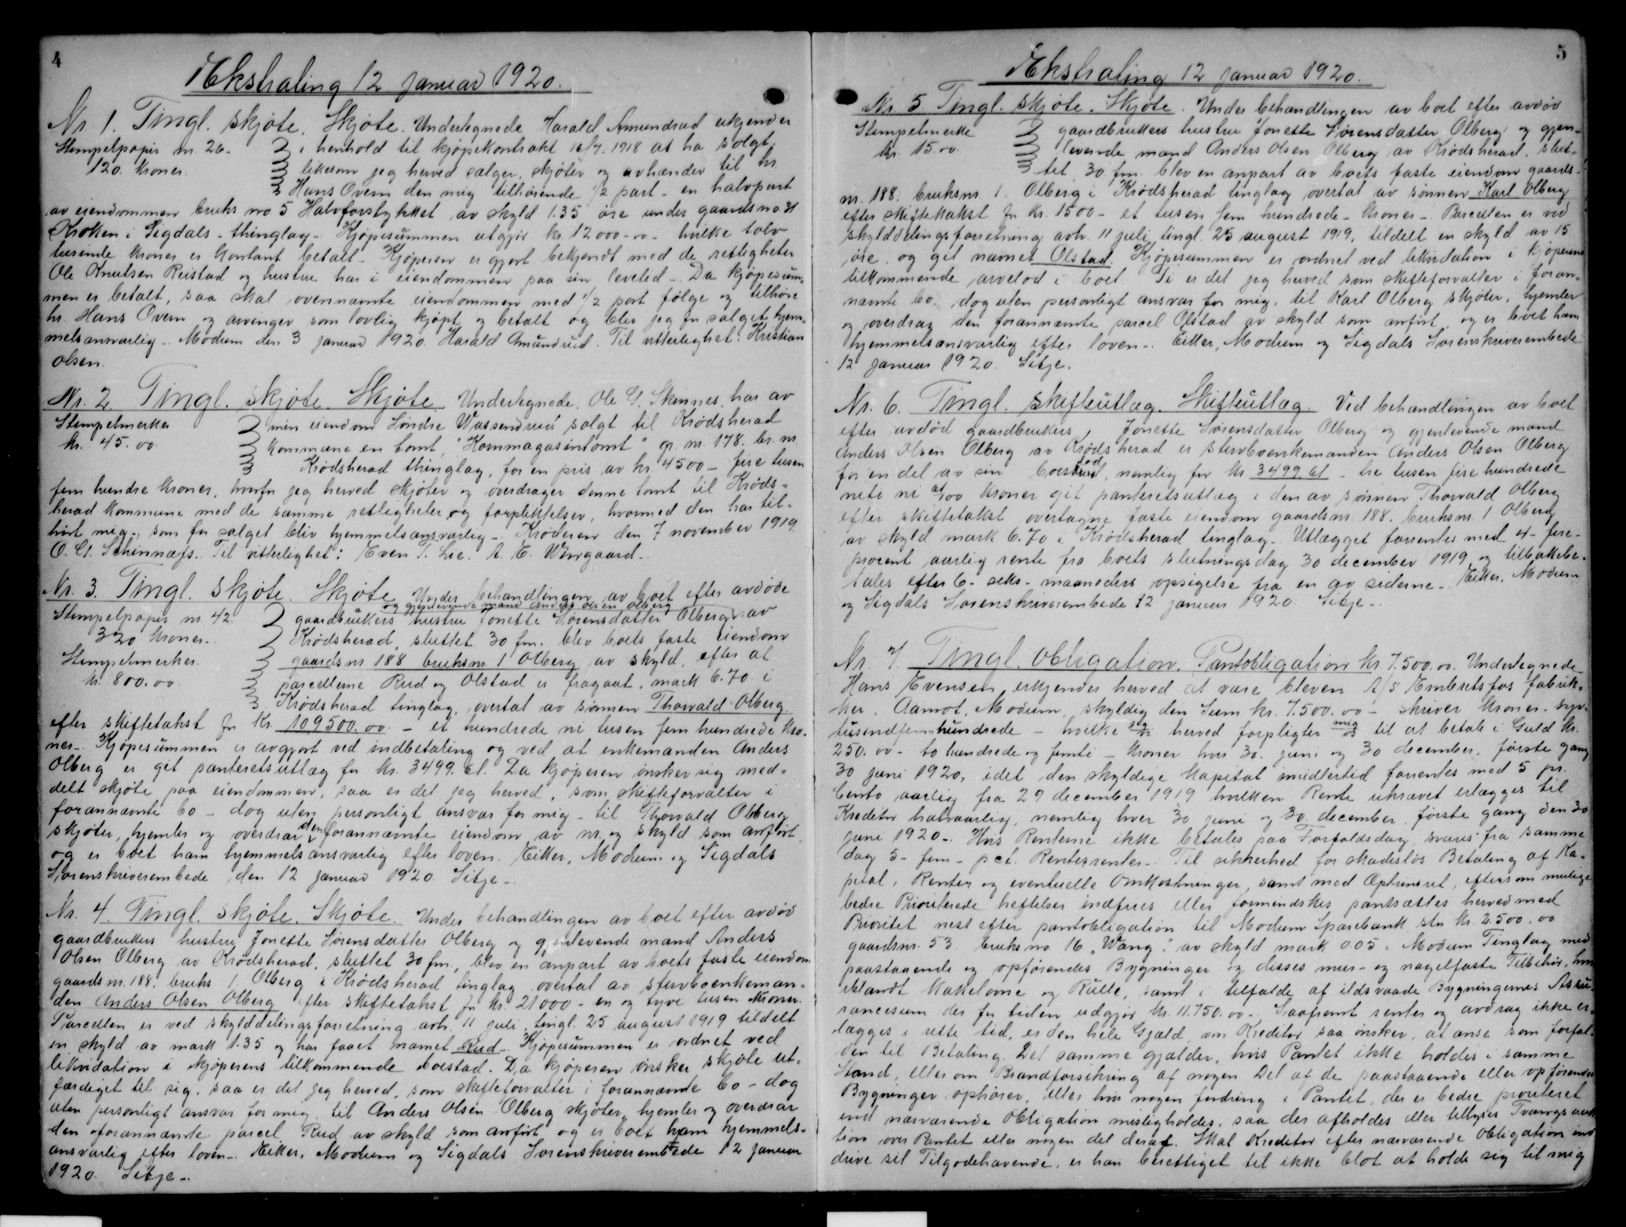 4
Ekstrating 12 januar 1920.
Nr 1. Tingl. skjøte. Skjøte. Undertegnede Harald Amundrud erkjender
Stempelpapir nr. 26.
120 kroner.
i henhold til kjøpekontrakt 16/7. 1918 at ha solgt,
likesom jeg herved sælger, skjøter og avhænder til hr
Hans Overn den mig tilhørende 1/2 part - en halvpart
av eiendommen bruks nro 5 Halvforstykket av skyld 1.35 øre under gaards no 31
Kroken i Sigdals - thinglag - Kjøpesummen utgjør kr. 12000-00- hvilke tolv
tusende kroner er kontant betalt. Kjøperen er gjort bekjendt med de rettigheter
Ole Knutsen Reistad og hustru har i eiendommen paa sin levetid - Da kjøpesum-
men er betalt, saa skal ovennævnte eiendommen med 1/2 part følge og tilhøre
hr. Hans Overn og arvinger som lovlig kjøpt og betalt og blir jeg for salget hjem-
melsansvarlig. Modum den 3 januar 1920. Harald Amundrud. Til vitterlighet: Kristian
Olsen.
Nr. 2 Tingl. skjøte. Skjøte. Undertegnede Ole G. Skinnes, har av
Stempelmerke
kr. 45.00
min eiendom Søndre Wassendrud solgt til Krødsherad
kommune en tomt, "Kornmagasintomt" g. nr. 178. br. nr.
Krødsherad thinglag, for en pris av kr. 4500 - fire tusen
fem hundre kroner, hvorfor jeg herved skjøter og overdrager denne tomt til Krøds-
herad kommune med de samme rettigheter og forpliktelser, hvormed den har til-
hørt mig, som for salget bliv hjemmelsansvarlig - Krøderen den 7 november 1919
O. G. Schinnæss. Til vitterlighet: Even T. Lie. A. E. Worgaard.
Nr. 3. Tingl. skjøte. Skjøte Under behandlingen av boet efter avdøde
og gjenlevende mand Anders Olsen Olberg
Stempelpapir nr. 42.
320 kroner.
Stempelmerker
kr. 800.00.
gaardbrukers hustru Jonette Sørensdatter Olberg av
Krødsherad, sluttet 30 f.m. blev boets faste eiendom
gaardsnr 188 bruksnr 1 Olberg av skyld, efter at
parcellerne Rud og Olstad er fragaat, mark 6.70 i
Krødsherad tinglag, overtat av sønnen Thorvald Olberg
efter skiftetakst for kr. 109500.00 - et hundrede ni tusen fem hundrede kro-
ner - Kjøpesummen er avgjort ved indbetaling og ved at enkemanden Anders
Olberg er git panteretsutlæg for kr. 3499.61. Da kjøperen ønsker sig med-
delt skjøte paa eiendommen, saa er det jeg herved, som skifteforvalter i
forannævnte bo - dog uten personligt ansvar for mig - til Thorvald Olberg
skjøter, hjemler og overdrar den forannævnte eiendom av nr. og skyld som anført,
og er boet ham hjemmelsansvarlig efter loven. Eiker, Modum og Sigdals
Sorenskriverembede den 12 januar 1920. Sitje.-
Nr. 4 Tingl. skjøte. Skjøte. Under behandlingen av boet efter avdød
gaardbrukers hustru Jonette Sørensdatter Olberg og gjenlevende mand Anders
Olsen Olberg av Krødsherad, sluttet 30 f.m., blev en anpart av boets faste eiendom
gaards nr. 188. bruks 1 Olberg i Krødsherad tinglag overtat av stervboenkeman-
den Anders Olsen Olberg efter skiftetakst for kr. 21000 - en og tyve tusen kroner.
Parcellen er ved skylddelingsforretning avh. 11 juli tingl. 25 august 1919 tildelt
en skyld av mark 1.35 og har faaet navnet Rud - Kjøpesummen er ordnet ved
likvidation i kjøperens tilkommende boestad. Da kjøperen ønsker skjøte ut-
færdiget til sig, saa er det jeg herved, som skifteforvalter i forannævnte bo - dog
uten personligt ansvar for mig, til Anders Olsen Olberg skjøter, hjemler og overdrar
den forannævnte parcel Rud av skyld som anført og er boet ham hjemmels-
ansvarlig efter loven - Eiker, Modum og Sigdals Sorenskriverembede 12 januar
1920 Sitje.-
5
Ekstrating 12 januar 1920.
Nr. 5 Tingl. skjøte. Skjøte. Under behandlingen av boet efter avdød
Stempelmerke
kr. 15.00.
gaardbrukers hustru Jonette Sørensdatter Olberg og gjen-
levende mand Anders Olsen Olberg av Krødsherad, slut-
tet 30 f.m. blev en anpart av boets faste eiendom gaards-
nr. 188. bruksnr. 1. Olberg i Krødsherad tinglag overtat av sønnen Karl Olberg
efter skiftetakst for kr. 1500 - et tusen fem hundrede - kroner -. Parcellen er ved
skylddelingsforretning avh. 11 juli, tingl. 25 august 1919, tildelt en skyld av 15
øre og git navnet Olstad. Kjøpesummen er ordnet ved likvidation i kjøperens
tilkommende arvelod i boet. Ti er det jeg herved som skifteforvalter i foran-
nævnte bo dog uten personligt ansvar for mig, til Karl Olberg skjøter, hjemler
og overdrag den forannævnte parcel Olstad av skyld som anført, og er boet ham
hjemmelsansvarlig efter loven -. Eiker, Modum og Sigdals Sorenskriverembede
12 januar 1920. Sitje.
Nr. 6. Tingl. skifteutlæg. Skifteutlæg. Ved behandlingen av boet
efter avdød gaardbrukers Jonette Sørensdatter Olberg og gjenlevende mand
Anders Olsen Olberg av Krødsherad er stervboenkemanden Anders Olsen Olberg
for en del av sin boeslod, nemlig for kr. 3499.61 - tre tusen fire hundrede
nitti ni 61/00 kroner git panteretsutlæg i den av sønnen Thorvald Olberg
efter skiftetakst overtagne faste eiendom gaardsnr. 188. bruksnr. 1 Olberg
av skyld mark 6.70 i Krødsherad tinglag. Utlægget forrentes med 4 - fire -
procent aarlig rente fra boets slutningsdag 30 december 1919 og tilbakebe-
tales efter 6 - seks - maaneders opsigelse fra en av siderne - Eiker, Modum
og Sigdals Sorenskriverembede 12 januar 1920 Sitje -.
Nr. 7. Tingl. obligation. Pantobligation kr. 7.500.00. Undertegnede
Hans Evensen, erkjender herved at være bleven A/S Embretsfos fabrik-
ker, Aamot, Modum skyldig den Sum kr. 7.500.00 - skriver kroner - syv-
tusendfemhundrede - hvilke herved forpligter mig til at betale i Guld kr.
250.00 - to hundrede og femti - kroner hver 30. juni og 30 december, første gang
30 juni 1920, idet den skyldige kapital imidlertid forrentes med 5 pr.
Cento aarlig fra 29 december 1919 hvilken Rente ukrævet erlægges til
Kreditor halvaarlig, nemlig hver 30 juni og 30 december, første gang den 30
juni 1920 -. Hvis Renterne ikke betales paa Forfaldsdag, svares fra samme
dag 5 - fem - pct. Rentersrenter -. Til sikkerhed for skadesløs Betaling af Ka-
pital, Renter og eventuelle Omkostninger, samt med Opfrinsret, eftersom mulige
bedre Prioriterede heftelser indfries eller formindskes pantsættes herved med
Prioritet nest efter pantobligation til Modum Sparebank stor kr. 2.500.00
gaardsnr. 53. bruksno 16 "Wang" av skyld mark 0.05 i Modum Tinglag med
paastaaende og opførendes Bygninger og disses mur- og nagelfaste Tilbehør, hvor
iblandt Kakelovne og Rulle, samt i tilfælde af ildsvaade Bygningernes Assu-
rancesum der for tiden udgjør kr. 11.750.00 -. Saafremt renter og avdrag ikke er-
lægges i rette tid, er den hele Gjæld, om Kreditor saa ønsker, at anse som forfal-
den til Betaling. Det samme gjælder, hvis Pantet ikke holdes i samme
Stand, eller om Brandforsikring af nogen Del af de paastaaende eller opførendes
Bygninger ophører, eller hvis nogen fordring i Pantet, der er bedre prioriteret
end nærværende Obligation misligholdes, saa der afholdes eller tillyses Tvangsauk
tion over Pantet eller nogen del deraf. Skal Kreditor efter nærværende Obligation ind
drive sit Tilgodehavende, er han berettiget til ikke blot at holde sig til mig